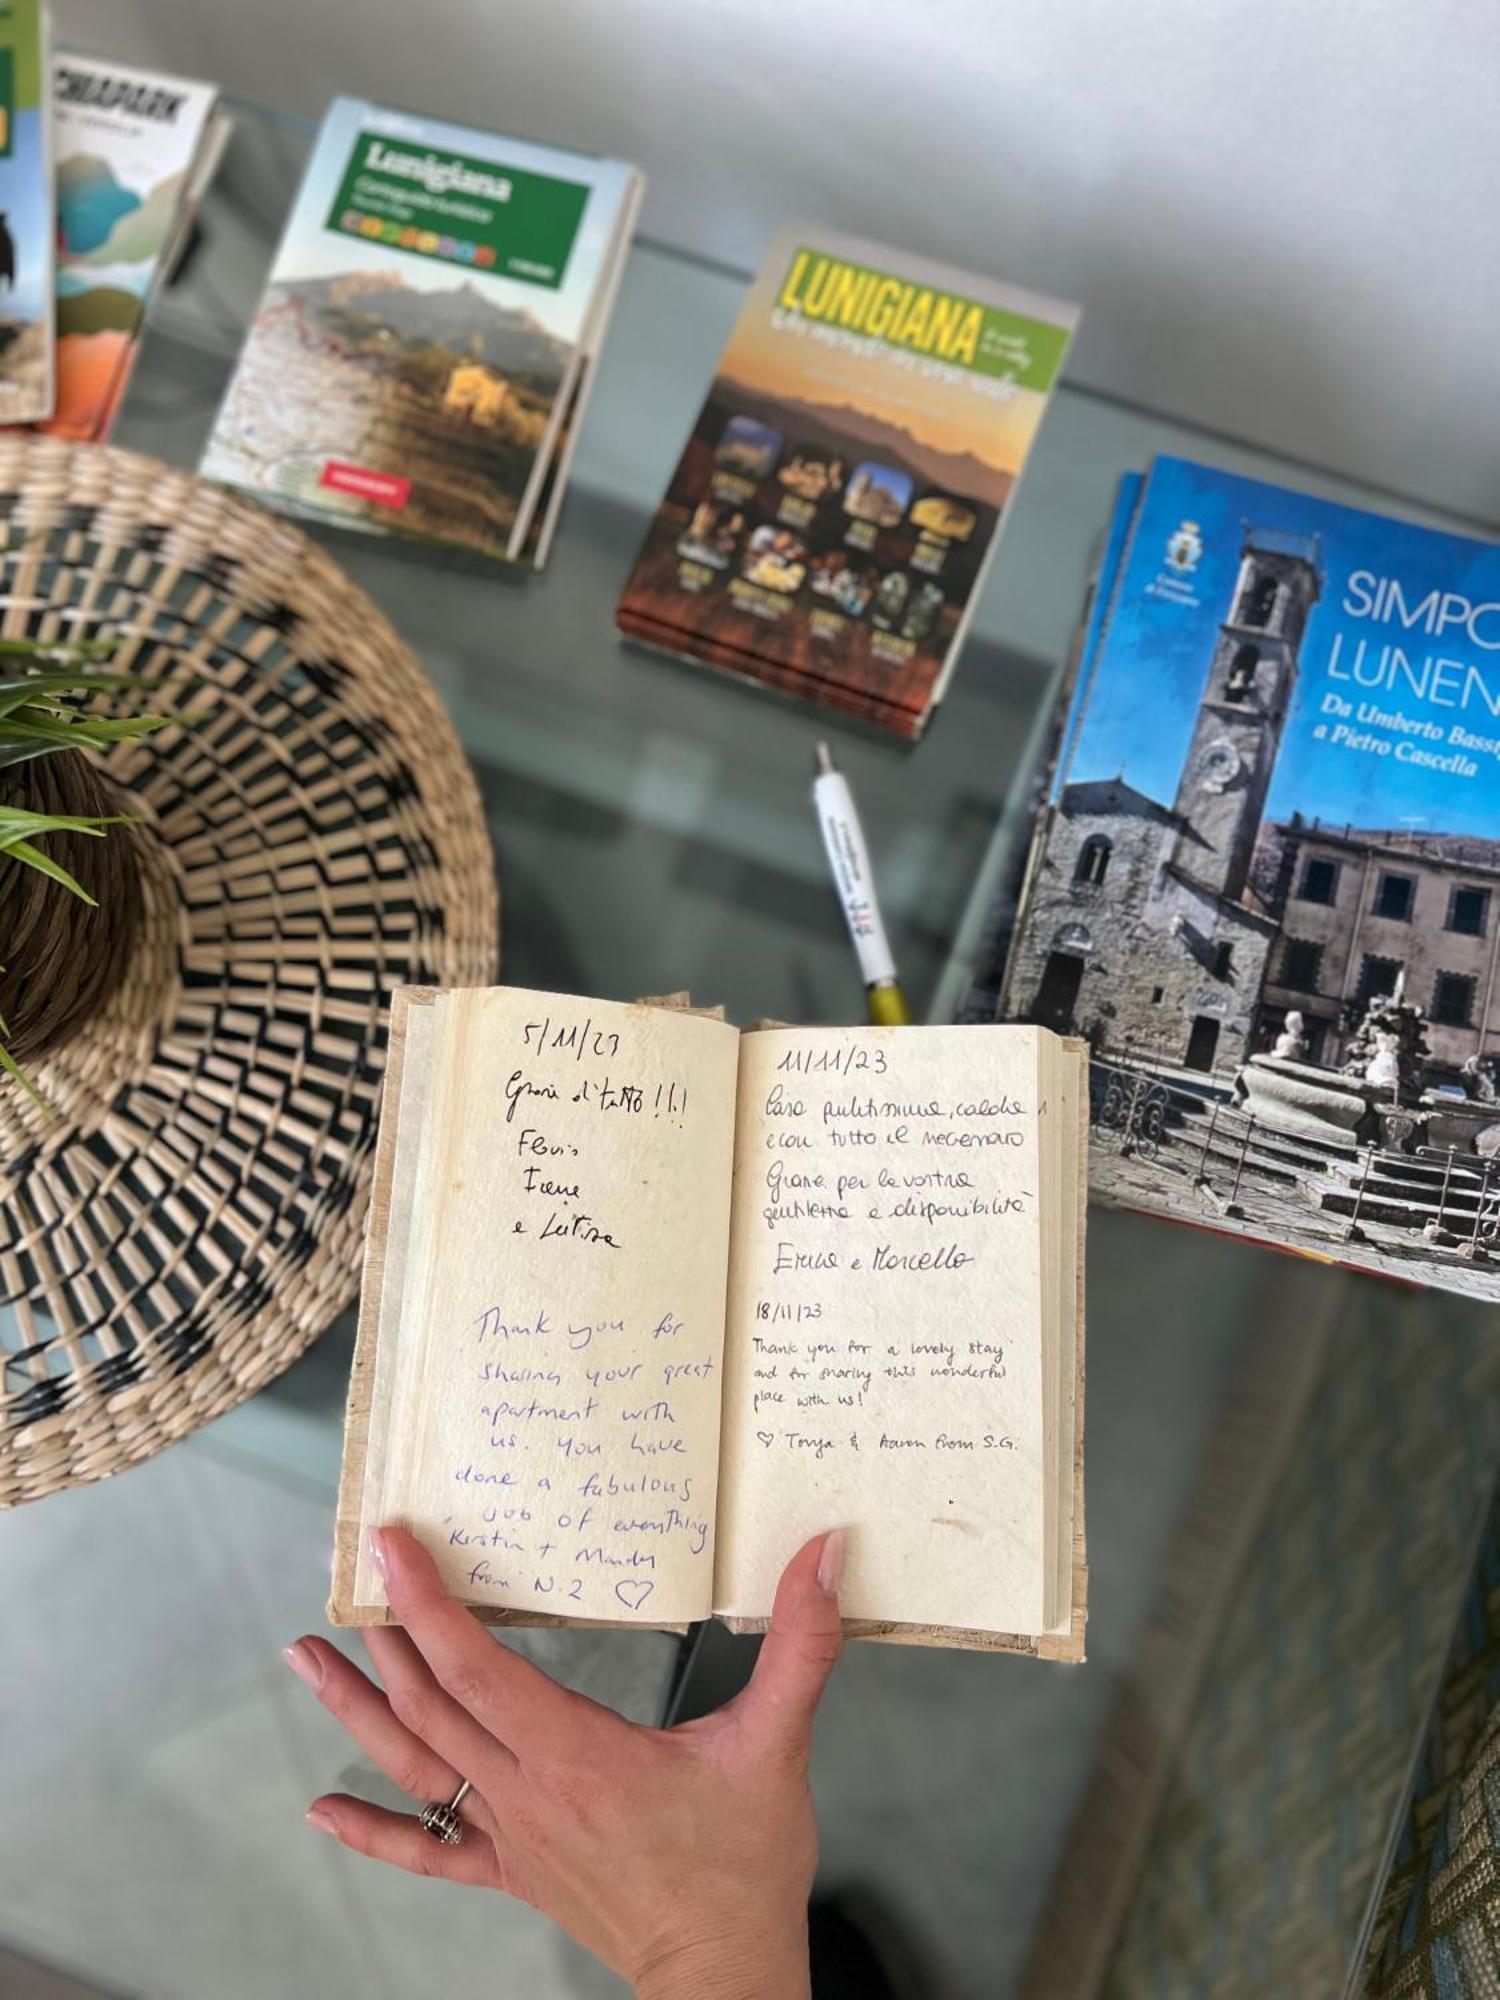 CHIAPARK
Lunigiana
Cartoguida turistica
LUNIGIANA
SIMPO
LUNEN
Da Umberto Bass
a Pietro Cascella
Comune
5/11/23
Grazie di tutto!!!
Flavio
Irene
e Letizia
Thank you for
sharing your great
apartment with
us. you have
done a fabulous
job of everything
Kerstin + Mandy
from N.Z ♡
11/11/23
Casa pulitissima, calda
e con tutto il necessario
Grazie per la vostra
gentilezza e disponibilità
Erica e Marcello
18/11/23
Thank you for a lovely stay
and for sharing this wonderful
place with us!
♡ Tonya & Aaron from S.G.